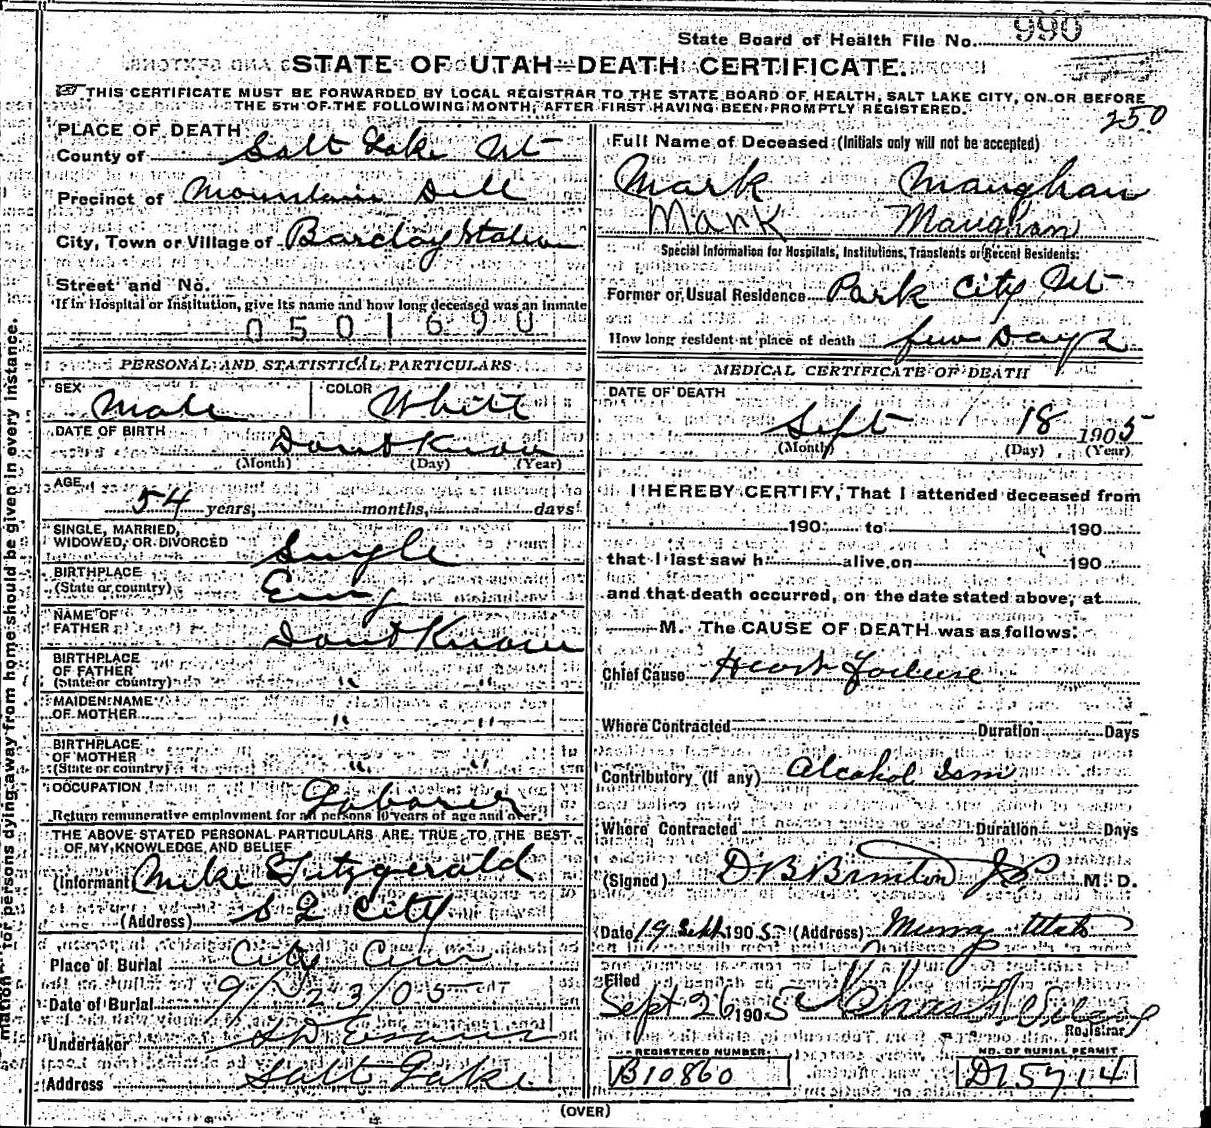 State Board of Health File No. 990
STATE OF UTAH—DEATH CERTIFICATE.
THIS CERTIFICATE MUST BE FORWARDED BY LOCAL REGISTRAR TO THE STATE BOARD OF HEALTH, SALT LAKE CITY, ON OR BEFORE
THE 5TH OF THE FOLLOWING MONTH, AFTER FIRST HAVING BEEN PROMPTLY REGISTERED.
250
PLACE OF DEATH
County of Salt Lake Ut
Precinct of Mountain Dell
City, Town or Village of Barclay Station
Street and No.
If in Hospital or Institution, give its name and how long deceased was an inmate
0501690
PERSONAL AND STATISTICAL PARTICULARS
SEX Male COLOR White
DATE OF BIRTH Dont Know
(Month) (Day) (Year)
AGE
54 years, months, days
SINGLE, MARRIED,
WIDOWED, OR DIVORCED Single
BIRTHPLACE
(State or country) Eng
NAME OF
FATHER Dont Know
BIRTHPLACE
OF FATHER
(State or country) " "
MAIDEN NAME
OF MOTHER " "
BIRTHPLACE
OF MOTHER
(State or country) " "
OCCUPATION Laborer
Return remunerative employment for all persons 10 years of age and over.
THE ABOVE STATED PERSONAL PARTICULARS ARE TRUE TO THE BEST
OF MY KNOWLEDGE AND BELIEF
(Informant Mike Fitzgerald
(Address) S L City
Place of Burial City Cem
Date of Burial 9/23/05
Undertaker Evans
Address Salt Lake
Full Name of Deceased (Initials only will not be accepted)
Mark Maughan
Mark Maugham
Special Information for Hospitals, Institutions, Transients or Recent Residents:
Former or Usual Residence Park City Ut
How long resident at place of death few Days
MEDICAL CERTIFICATE OF DEATH
DATE OF DEATH
Sept 18 1905
(Month) (Day) (Year)
I HEREBY CERTIFY, That I attended deceased from
190 to 190
that I last saw h alive on 190
and that death occurred, on the date stated above, at
M. The CAUSE OF DEATH was as follows:
Chief Cause Heart Failure
Where Contracted Duration Days
Contributory (if any) Alcohol Ism
Where Contracted Duration Days
(Signed) D B Brinton JP M. D.
Date 19 Sept 1905 (Address) Murray Utah
Filed
Sept 26 1905
Registrar
REGISTERED NUMBER
B10860
NO. OF BURIAL PERMIT
D15714
(OVER)
mation for persons dying away from home should be given in every instance.